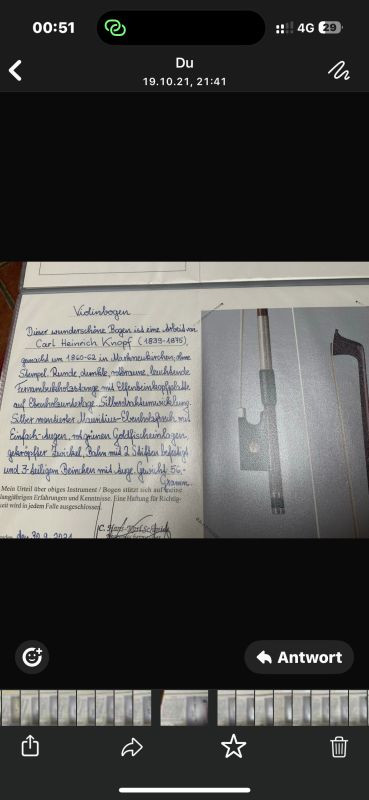 00:51
4G 29
Du
19.10.21, 21:41
Violinbogen
Dieser wunderschöne Bogen ist eine Arbeit von
Carl Heinrich Knopf (1839-1875),
gemacht um 1860-62 in Markneukirchen, ohne
Stempel. Runde, dunkle, rotbraune, leuchtende
Fernambukholzstange mit Elfenbeinkopfplatte
auf Ebenholzunterlage. Silberdrahtumwicklung.
Silber montierter Mauritius-Ebenholzfrosch mit
Einfach-Augen, mit grünen Goldfischeinlagen,
gekröpfter Zwickel, Bahn mit 2 Stiften befestigt
und 3-teiligem Beinchen mit Auge. Gewicht 56,-
Gramm.
Mein Urteil über obiges Instrument / Bogen stützt sich auf meine
langjährigen Erfahrungen und Kenntnisse. Eine Haftung für Richtig-
keit wird in jedem Falle ausgeschlossen.
den 30.9.2021
Antwort